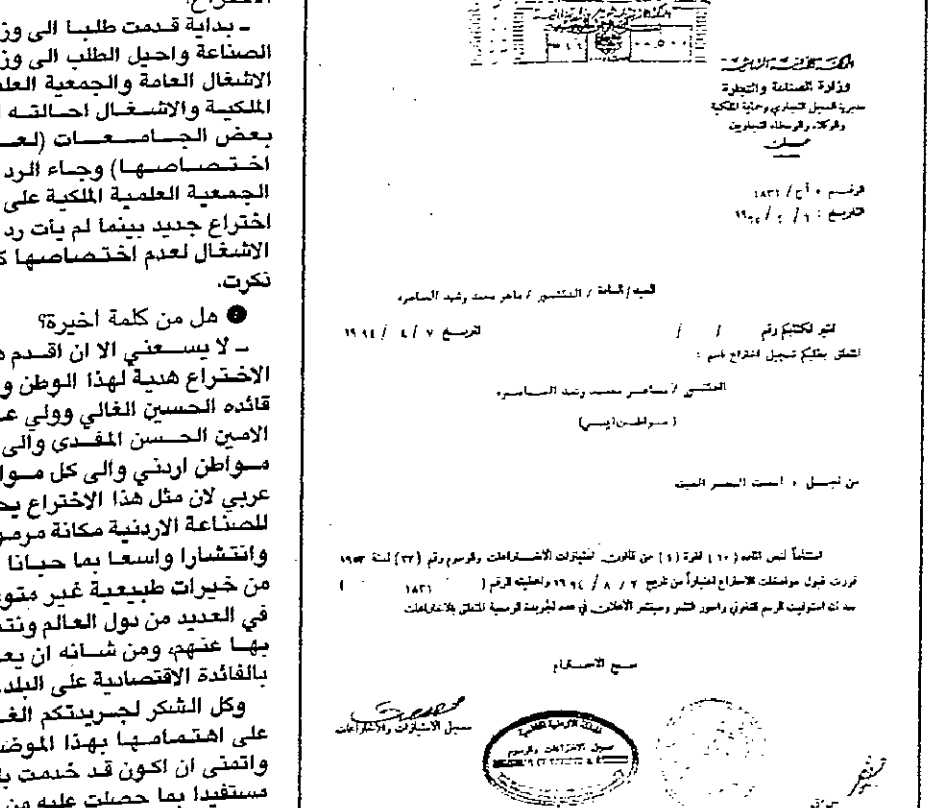 الاختراع.
ـ بداية قدمت طلبا الى وز
الصناعة واحيل الطلب الى وز
الاشغال العامة والجمعية العلم
الملكية والاشغال احالته ا
بعض الجامعات (لعـ
اختصاصها) وجاء الرد
الجمعية العلمية الملكية على
اختراع جديد بينما لم يأت رد
الاشغال لعدم اختصاصها كـ
ذكرت.
● هل من كلمة اخيرة؟
ـ لا يسعني الا ان اقدم هـ
الاختراع هدية لهذا الوطن و
قائده الحسين الغالي وولي عـ
الامين الحسن المفدى والى
مواطن اردني والى كل موا
عربي لان مثل هذا الاختراع يحـ
للصناعة الاردنية مكانة مرمو
وانتشارا واسعا بما حبانا
من خيرات طبيعية غير متو
في العديد من دول العالم ونتـ
بها عنهم، ومن شانه ان يعـ
بالفائدة الاقتصادية على البلد.
وكل الشكر لجريدتكم الغـ
على اهتمامها بهذا الموضـ
واتمنى ان اكون قد خدمت با
مستفيدا بما حصلت عليه من
وزارة الصناعة والتجارة
مديرية السجل التجاري وحماية الملكية
والوكلاء والوسطاء التجاريين
عمان
الرقم : أخ / ١٨٣١
السيد/السادة / المهندس / ماهر محمد رشيد
اشير لكتابكم رقم / / تاريخ ٧ / ٤ / ١٩٩٤
المتعلق بطلبكم تسجيل اختراع باسم :
محمد رشيد
من اجل :
استناداً لنص المادة (١٠) فقرة (٤) من قانون امتيازات الاختراعات والرسوم رقم (٢٢) لسنة ١٩٥٣
قررت قبول مواصفات الاختراع اعتباراً من تاريخ ٢ / ٨ / ١٩٩٤ واعطيته الرقم ( ١٨٣١ )
بعد ان استوفيت الرسم القانوني واجور النشر وسينشر الاعلان في عدد الجريدة الرسمية المتعلق بالاختراعات
مع الاحترام
مسجل الامتيازات والاختراعات
المملكة الاردنية الهاشمية